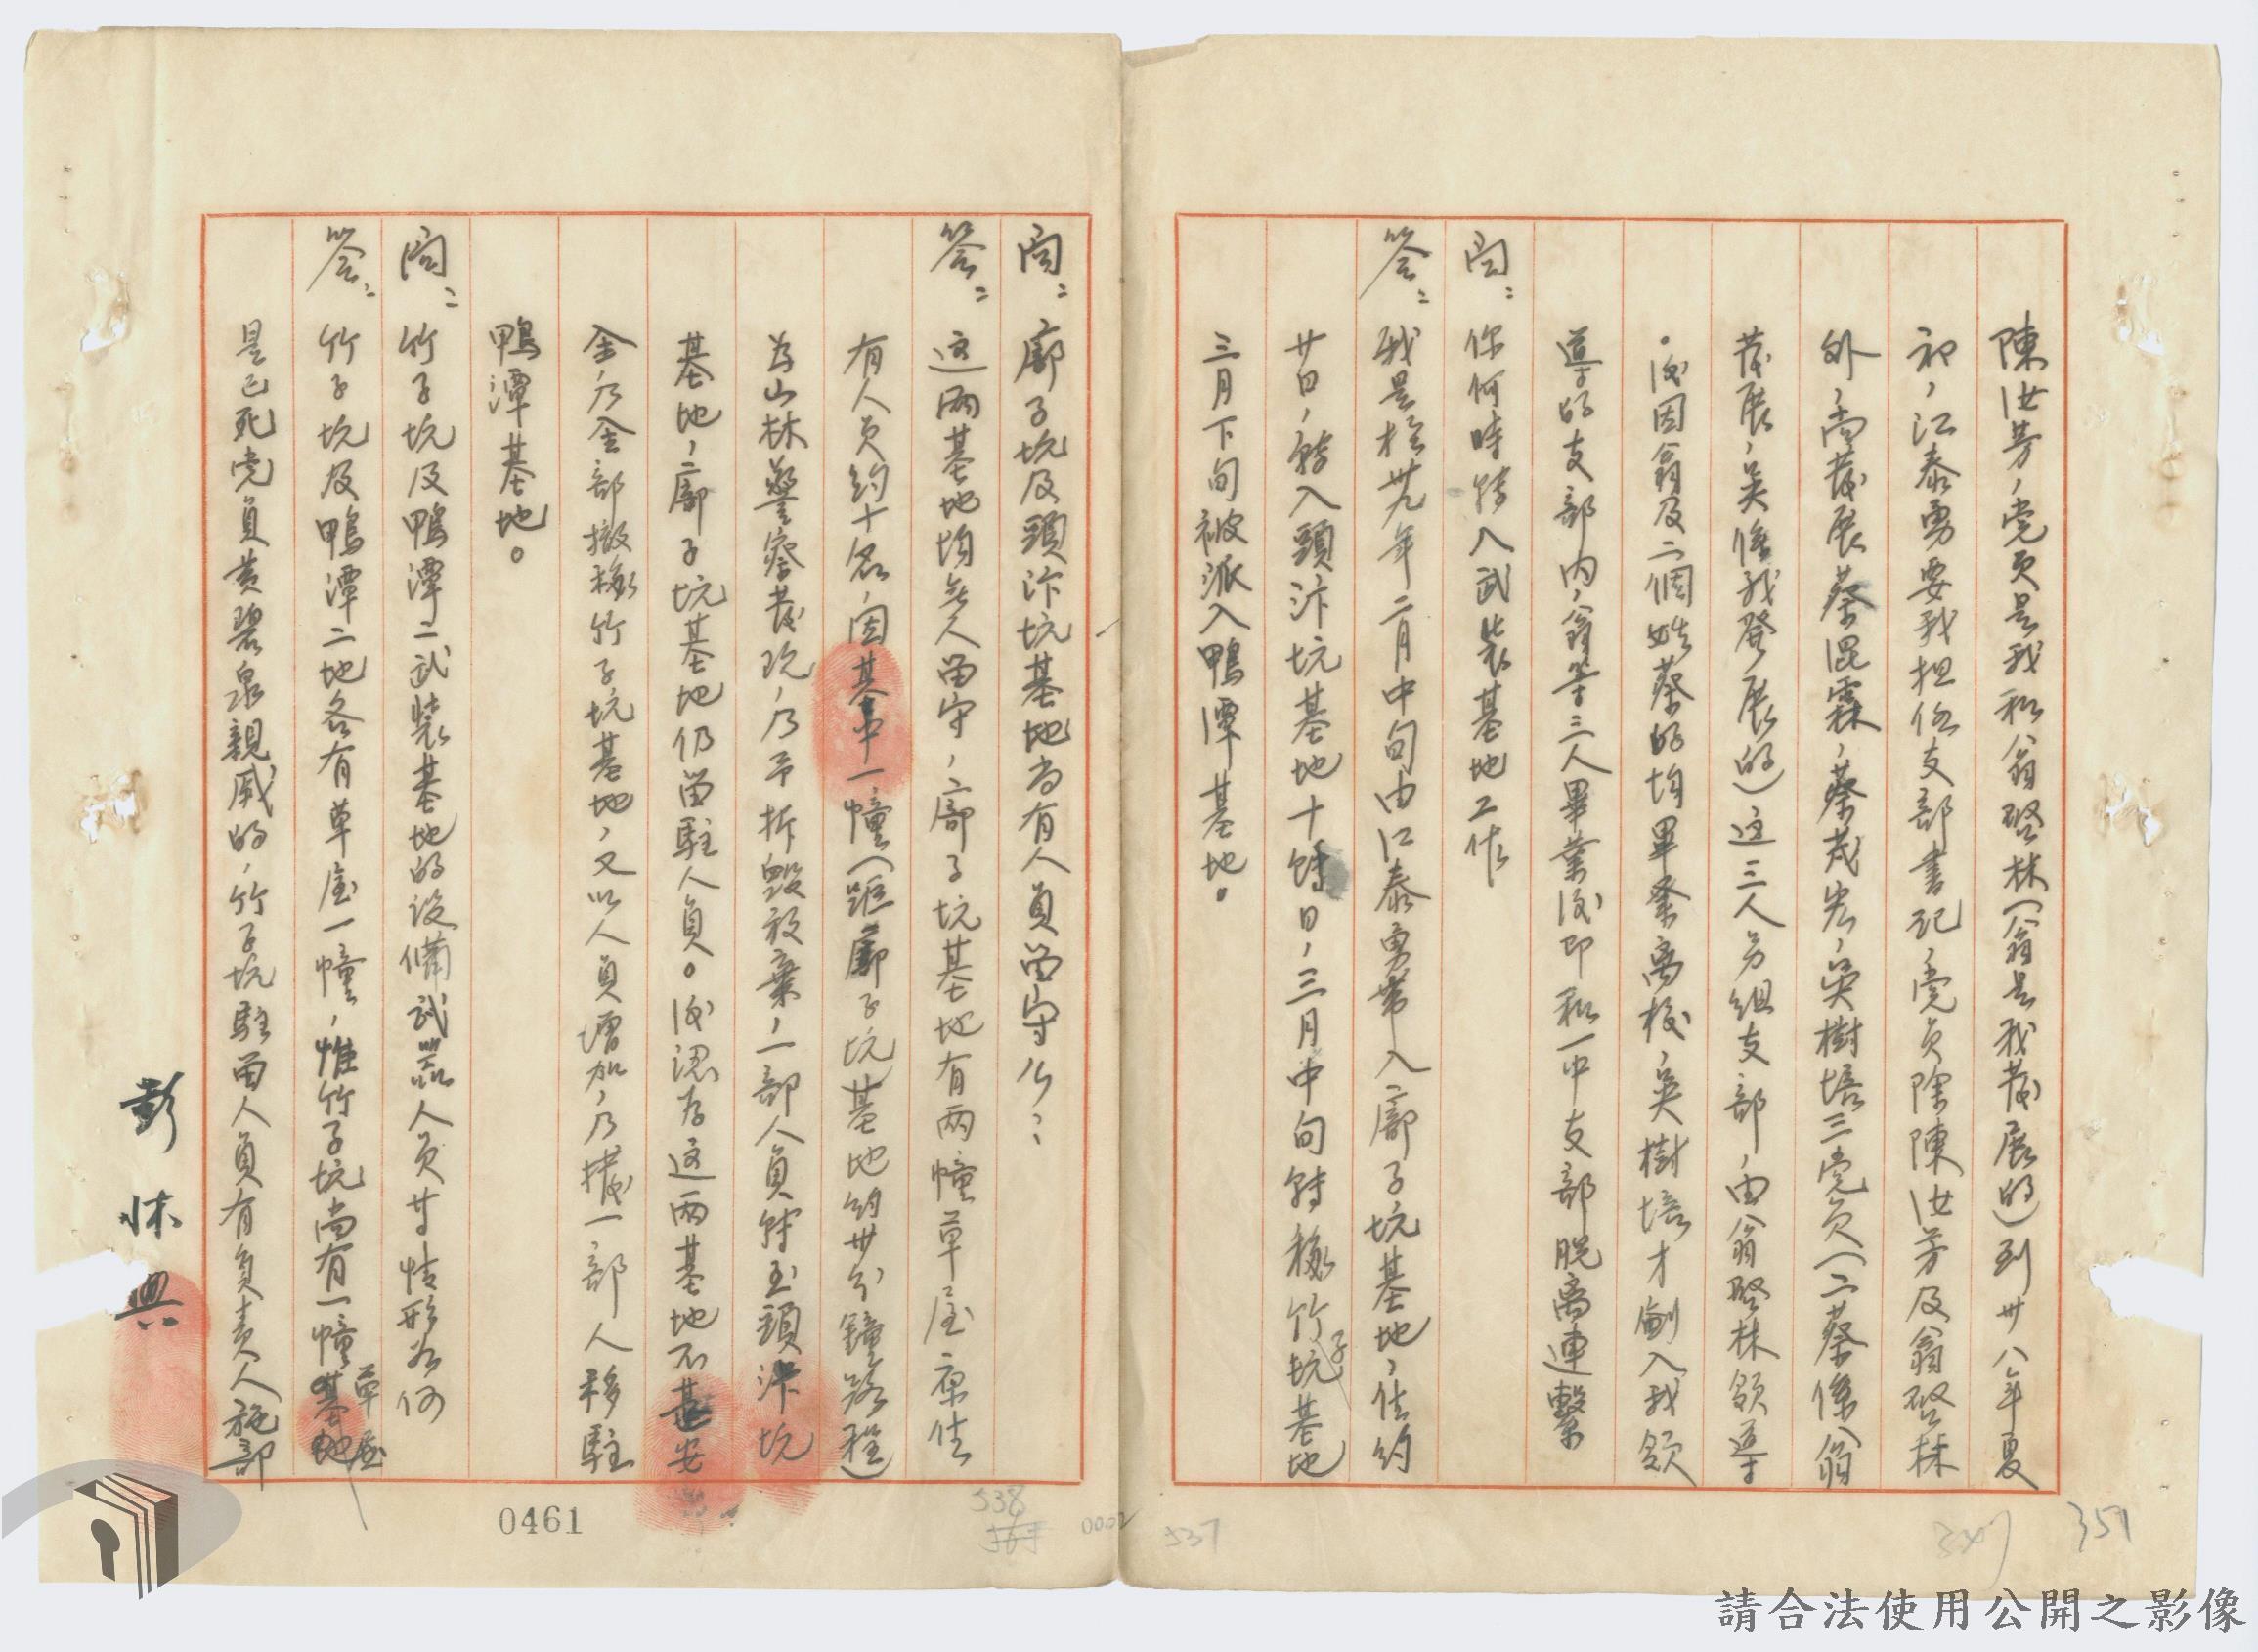 陳汝芳,党员是我和翁啓林(翁是我發展的)到卅八年夏
初,江泰勇要我担任支部書記,党员除陳汝芳及翁啓林
外,尚發展蔡混霖,蔡茂宏,吳樹培三党员(二蔡係翁
發展,吳係我發展的)这三人另组支部,由翁啓林領導
。後因翁及二個姓蔡的均畢業离校,吳樹培才劃入我領
導的支部内,翁等三人畢業後即和一中支部脱离連繫
问:你何時转入武装基地工作
答:我是於卅九年二月中旬由江泰勇帶入廍子坑基地,住約
廿日,轉入頭汴坑基地十餘日,三月中旬轉移竹子坑基地
三月下旬被派入鴨潭基地。
问:廍子坑及頭汴坑基地尚有人員留守么:
答:这兩基地均無人留守,廍子坑基地有兩幢草屋原住
有人员約十名,因其中一幢(距廍子坑基地約卅分鐘路程)
為山林警察發現,乃予拆毀放棄,一部人員轉至頭汴坑
基地,廍子坑基地仍留駐人員。後認為这兩基地不甚安
全,乃全部撤移竹子坑基地,又以人員增加,乃撥一部人移駐
鴨潭基地。
问:竹子坑及鴨潭二武裝基地的設備武器人员等情形如何
答:竹子坑及鴨潭二地各有草屋一幢,惟竹子坑尚有一幢草屋基地
是已死党員黄碧泉親戚的,竹子坑駐留人員有負責人施部
彭沐興
0461
538
0002
537
347
351
請合法使用公開之影像